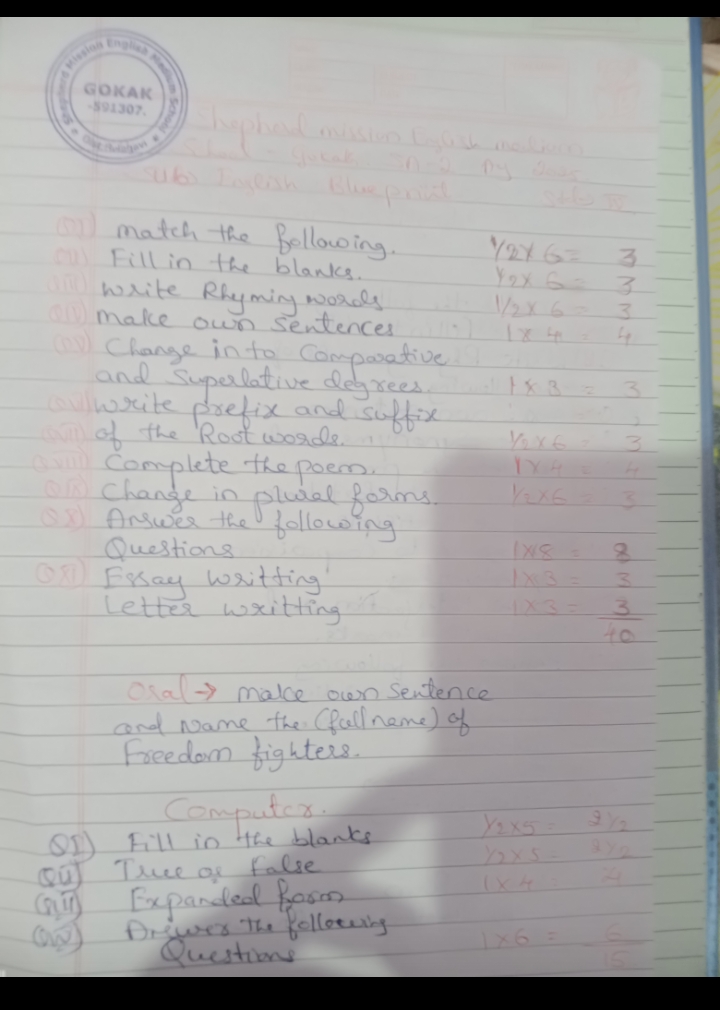 Shepherd Mission English Medium School
GOKAK
-591307.
Shepherd mission English medium
School - Gokak
Sub) English Blueprint
match the following. 1/2 x 6 = 3
Fill in the blanks. 1/2 x 6 = 3
write Rhyming words 1/2 x 6 = 3
make own sentences 1 x 4 = 4
Change in to Comparative
and Superlative degrees. 1 x 3 = 3
write prefix and suffix
of the Root words. 1/2 x 6 = 3
Complete the poem. 1 x 4 = 4
QIX) Change in plural forms. 1/2 x 6 = 3
QX) Answer the following
Questions 1 x 8 = 8
QXI) Essay writting 1 x 3 = 3
Letter writting 1 x 3 = 3
40
Oral → make own sentence
and Name the (full name) of
Freedom fighters.
Computer.
QI) Fill in the blanks 1/2 x 5 = 2 1/2
QII) True or False 1/2 x 5 = 2 1/2
QIII) Expanded form 1 x 4 = 4
QIV) Answer the following
Questions 1 x 6 = 6
15